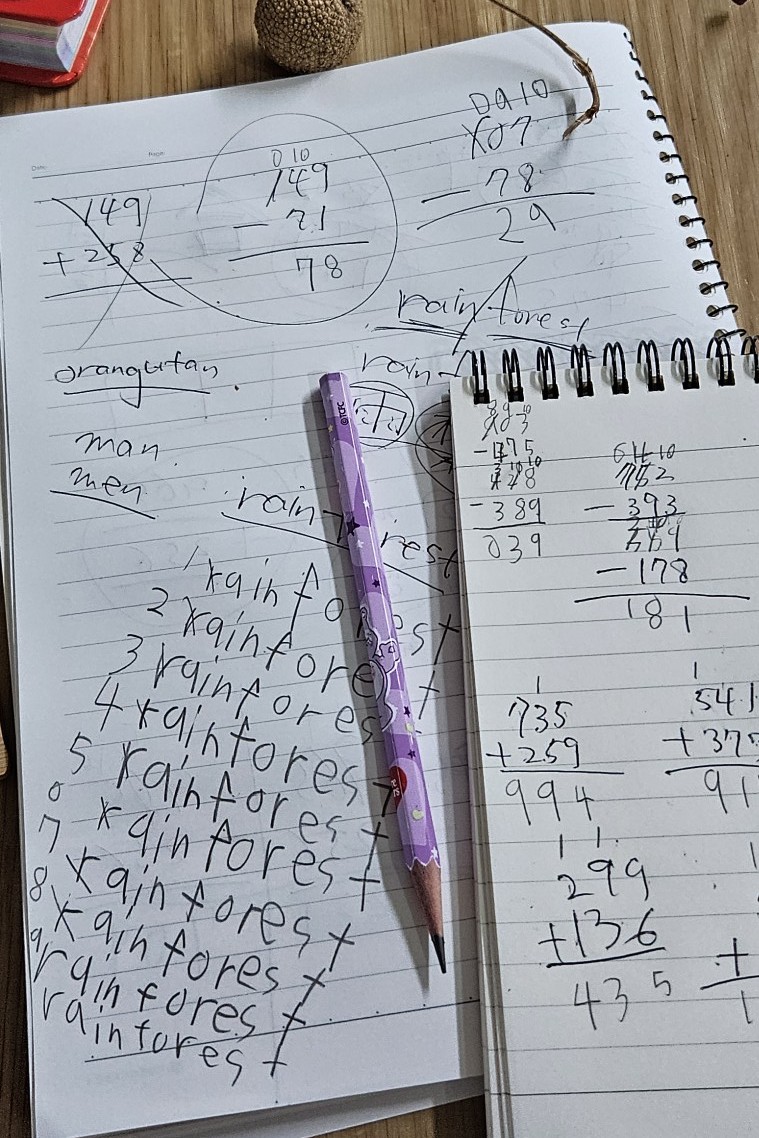 149
+ 258
0 10
149
- 71
78
0 9 10
107
- 78
29
rainforest
orangutan.
rain-
man
men
rainforest
1 rainforest
2 rainforest
3 rainforest
4 rainforest
5 rainforest
6 rainforest
7 rainforest
8 rainforest
9 rainforest
rainforest
rainforest
- 175
428
- 389
039
6 14 10
752
- 393
359
- 178
181
1
735
+ 259
994
1
541
+ 37
91
1 1
299
+ 136
435
1
+
1